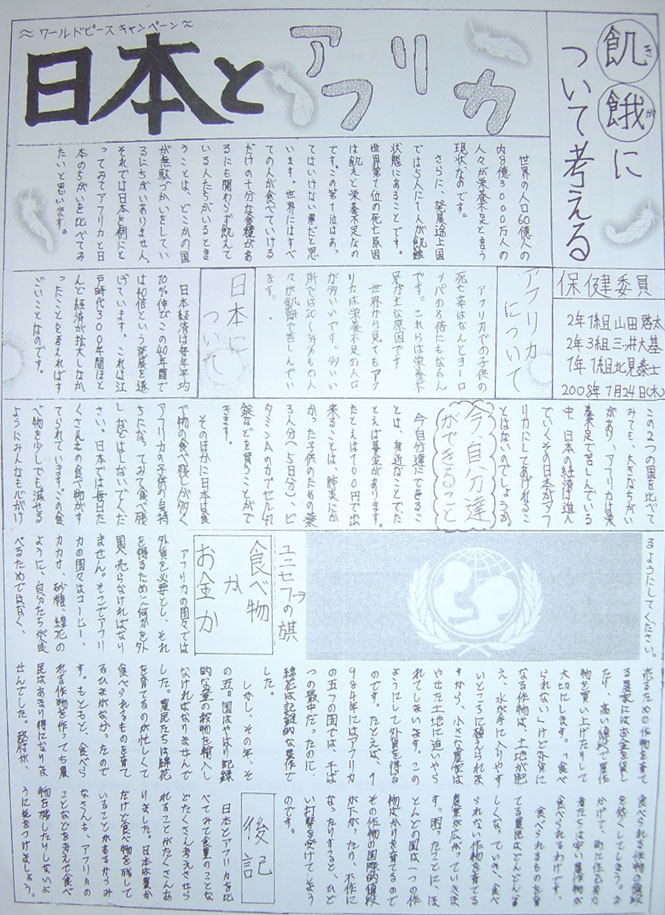 ～ワールドピースキャンペーン～
日本とアフリカ
飢餓に
ついて考える
き
が
保健委員
2年7組 山田啓太
2年3組 三井大基
1年7組 北見泰士
2008年7月24日(木)
世界の人口60億人の
内8億3000万人の
人々が栄養不足と言う
現状なのです。
さらに、発展途上国
では5人に1人が飢餓
状態にあることです。
世界第1位の死亡原因
は飢えと栄養不足なの
です。この第1位はあっ
てはいけない事だと思
います。世界にはすべ
ての人が食べていける
だけの十分な食糧があ
るにも関わらず飢えて
いる人たちがいるとい
うことは、どこかの国
が無駄づかいをしてい
るにちがいありません。
それでは日本を例にと
ってみてアフリカと日
本のちがいを比べてみ
たいと思います。
アフリカ
について
アフリカでの子供の
死亡率はなんとヨーロ
ッパの
です。これらは栄養が
足が主な原因です
世界から見てもアフ
リカは栄養不足の人口
が多いです。多い
所では20～34%もの人
々が飢餓で苦しんでい
ます。
日本に
ついて
日本経済は毎年平均
10%伸びこの40年間で
は40倍という発展を遂
げています。これは江
戸時代300年間ほと
んど経済が拡大しなか
ったことを考えればす
ごいことなのです。
この2つの国を比べて
みても、大きなちがい
があり、アフリカは栄
養不足で苦しんでいる
中、日本の経済は進ん
でいくその日本がアフ
リカにしてあげれるこ
とはないのでしょうか。
今、自分達
ができること
今、自分達にできるこ
とは、身近なことでた
とえば募金があります。
たとえば100円で出
来ることは、肺炎にか
かった子供のための薬
3人分へ5日分)、ビ
タミンAのカプセル41
錠などを買うことがで
きます。
そのほかに日本は食
べ物の食べ残しが多く
アフリカの子供の気持
ちになってみて食べ残
しなどはしないでくだ
さい。日本では毎日た
くさんもの食べ物がす
てられています。この食
べ物を少しでも減せる
ようにみんなも心がけ
るようにしてください。
ユニセフの旗→
食べ物
か
お金か
アフリカの国々では
外貨を必要とし、それ
を得るために何かを外
国へ売らなければなり
ません。そこでアフリ
カの国々はコーヒー、
カカオ、砂糖、綿花の
ように、自分たちが食
べるためではなく、
売るための作物を育て
る農家にはお金を貸し
たり、高い値段で農作
物を買い上げたりして
大切にします。「食べ
られない」けど外貨に
なる作物は、土地が肥
え、水が手に入りやす
いところに植えられま
すから、小さな農家は
やせた土地に追いやら
れてしまいます。この
ようにして外貨を得る
のです。たとえば、1
984年にはアフリカ
の五つの国では、干ば
つの最中だったのに
綿花は記録的な豊作で
した。
しかし、その年、そ
の五つの国はやはり記録
的な量の穀物を輸入し
なければなりませんで
した。農民たちは綿花
を育てるのが忙しくて
食べられるものを育て
るひまがなか、たので
す。もともと、食べら
れる作物を作っても農
民はあまり得になりま
せんでした。政府が、
食べられる作物の値段
を低くしてしまう。
かげで、町に住む労力
者たちは安い農作物が
食べられるわけです。
食べられるものを育
てる農民はどんどん貧
しくなっていき、食べ
られない作物を育てる
農業が広がっていきま
す。困ったことに、ほ
とんどの国は一つの作
物ばかりを育てるので
その作物の国際的値段
が下がったり、不作に
なったりすると、ひど
い打撃を受けてしまう
のです。
後記
日本とアフリカを比
べてみて食量のことな
どたくさん考えさせら
れることがたくさんあ
りました。日本は豊か
だけど食べ物を残して
いることがあるからみ
なさんも、アフリカの
ことなどを考えて食べ
物を残したりしないよ
うに気をつけましょう。